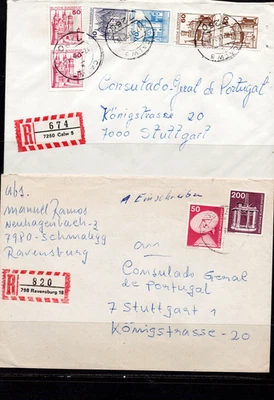 60
60
Consulado Geral de Portugal
Königstrasse 20
7000 Stuttgart
R
674
7260 Calw 5
abs.
Manuel Ramos
7980-Schmalegg
Ravensburg
Einschreiben
50
200
an
Consulado Geral
de Portugal
7 Stuttgart 1
Königstrasse-20
R
820
798 Ravensburg 16